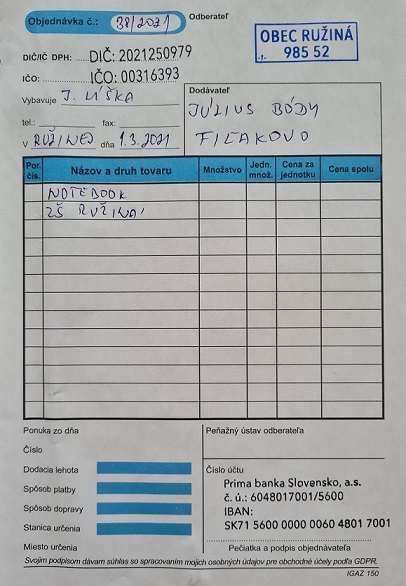 Objednávka č.: 38/2021
Odberateľ
OBEC RUŽINÁ
-1- 985 52
DIČ/IČ DPH: DIČ: 2021250979
IČO: IČO: 00316393
Vybavuje J. LÍŠKA
Dodávateľ
JÚLIUS BÓDY
tel.: fax:
FIĽAKOVO
V RUŽINEJ dňa 1.3.2021
Por. čís. Názov a druh tovaru Množstvo Jedn. množ. Cena za jednotku Cena spolu
NOTEBOOK
ZŠ RUŽINÁ
Ponuka zo dňa
Peňažný ústav odberateľa
Číslo
Dodacia lehota
Číslo účtu
Prima banka Slovensko, a.s.
Spôsob platby
č. ú.: 6048017001/5600
Spôsob dopravy
IBAN:
Stanica určenia
SK71 5600 0000 0060 4801 7001
Miesto určenia
Pečiatka a podpis objednávateľa
Svojim podpisom dávam súhlas so spracovaním mojich osobných údajov pre obchodné účely podľa GDPR.
IGAZ 150